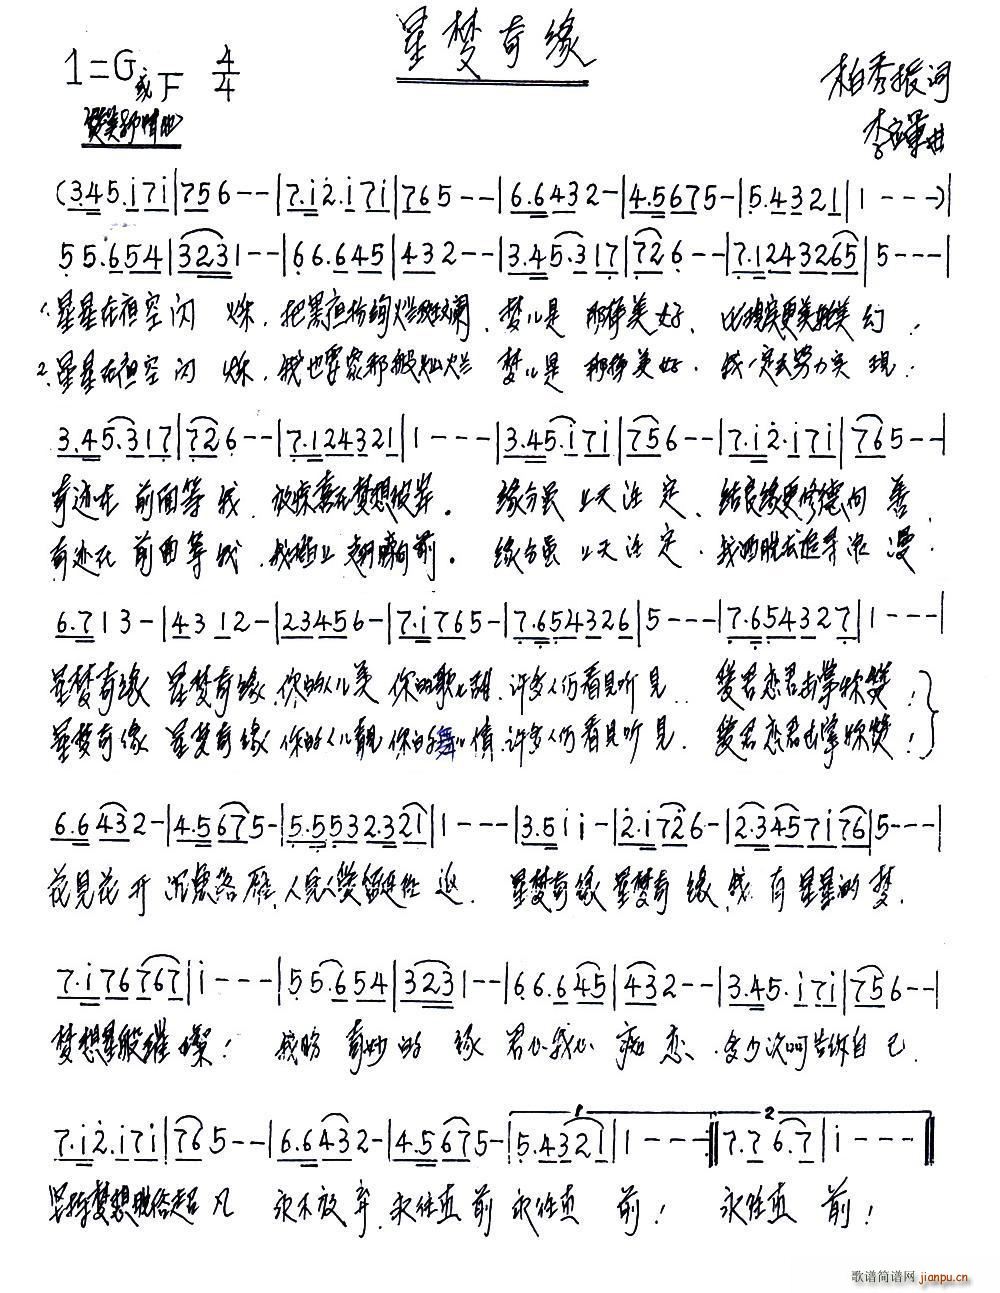 星梦奇缘
1=G或F 4/4
柏秀振词
李 曲
(3.45.i7i|756--|7.i2.i7i|765---|6.6432-|4.5675-|5.4321|1---)|
55.654|3231--|66.645|432--|3.45.317|726--|7.1243265|5---|
1.星星在夜空闪 烁,把黑夜 绚烂斑斓,梦儿是 那样美好,比现实更美 美幻!
2.星星在夜空闪 烁,我也要像那般灿烂 梦儿是 那样美好,我一定去努力实 现!
3.45.317|726--|7.124321|1---|3.45.i7i|756--|7.i2.i7i|765--|
奇迹在 前面等 我, 探索在梦想彼岸。 缘分虽 上天注 定, 结良缘更修德向 善,
奇迹在 前面等 我,我 上翅膀向前。 缘分虽 上天注 定,我 洒脱去追寻浪 漫,
6.713-|4312-|23456-|7.i765-|7.654326|5---|7.654327|1---|
星梦奇缘 星梦奇缘,你的人儿美 你的歌儿甜,许多人仍看见听见 爱君恋君 掌你赞!
星梦奇缘 星梦奇缘 你的人儿靓 你的舞儿倩,许多人仍看见听见, 爱君恋君 掌你赞!
6.6432-|4.5675-|5.5532.321|1---|3.51i-|2.i726-|2.3457i76|5---|
花见花开 沉鱼落雁,人见人爱留连忘 返, 星梦奇缘 星梦奇 缘,我 有 星星的 梦,
7.i76767|i---|55.654|3231--|66.645|432--|3.45.i7i|756--|
梦想星般璀 璨! 我盼 奇妙的 缘 君心我心 痴 恋,多少次叮 告你自 己,
7.i2.i7i|765--|6.6432-|4.5675-|5.4321|1---:‖7.76.7|i---‖
坚持梦想脱俗超 凡 永不放 弃,永往直 前 永往直 前! 永往直 前!
歌谱简谱网
jianpu.cn